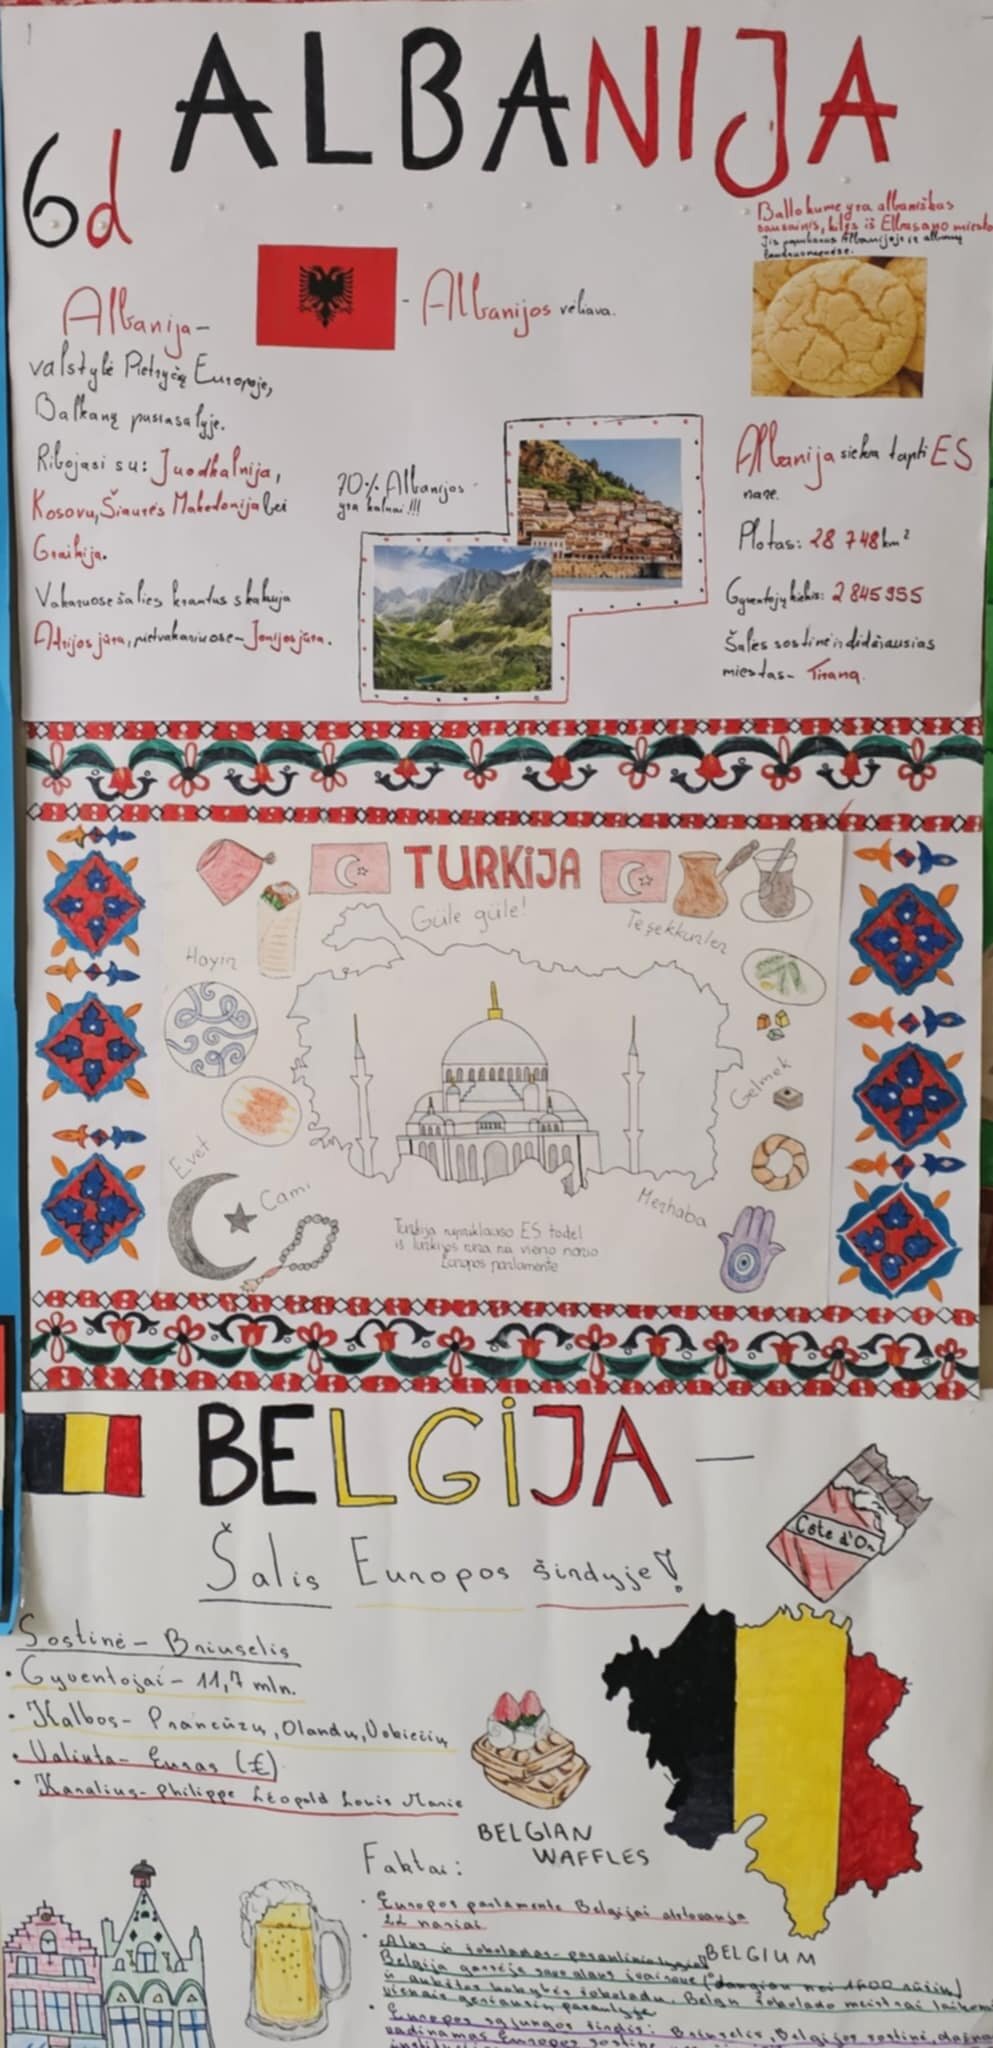 ALBANIJA
6d
Ballokume yra albaniškas
sausainis, kilęs iš Elbasano miesto
Jis populiarus Albanijoje ir albanų
- Albanijos vėliava.
Albanija-
valstybė Pietryčių Europoje,
Balkanų pusiasalyje.
Ribojasi su: Juodkalnija,
Kosovu, Šiaurės Makedonija bei
Graikija.
Vakaruose šalies krantus skalauja
Adrijos jūra, pietvakariuose- Jonijos jūra.
70% Albanijos
yra kalnai!!!
Albanija siekia tapti ES
nare.
Plotas: 28 748 km²
Gyventojų kiekis: 2 845 955
Šalės sostinė ir didžiausias
miestas- Tirana.
TURKIJA
Güle güle!
Teşekkürler
Hayır
Gelmek
Evet
Cami
Merhaba
Turkija nepriklauso ES todėl
iš turkijos nėra nė vieno nario
Europos parlamente
BELGIJA —
Côte d'Or
Šalis Europos širdyje!
Sostinė - Briuselis
• Gyventojai - 11,7 mln.
• Kalbos- Prancūzų, Olandų, Vokiečių
• Valiuta- Euras (€)
• Karalius- Philippe Léopold Louis Marie
BELGIAN
WAFFLES
Faktai:
• Europos parlamente Belgijai atstovauja
22 nariai
BELGIUM
• Alus ir šokoladas- pasaulinio lygio!
Belgija garsėja savo alaus įvairove (daugiau nei 1600 rūšių)
ir aukštos kokybės šokoladu. Belgų šokolado meistrai laikomi
vienais geriausių pasaulyje
• Europos sąjungos širdis: Briuselis, Belgijos sostinė, dažnai
vadinamas Europos sostine